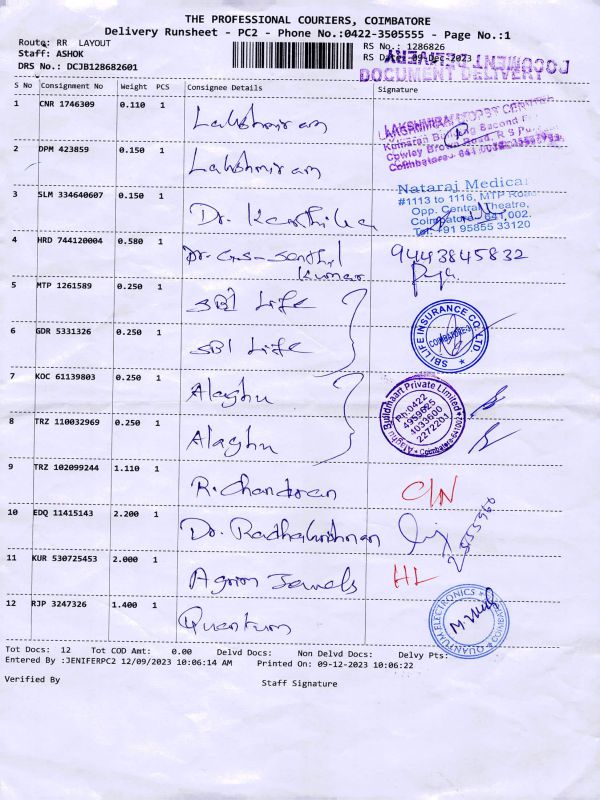 THE PROFESSIONAL COURIERS, COIMBATORE
Delivery Runsheet - PC2 - Phone No.:0422-3505555 - Page No.:1
Route: RR LAYOUT
Staff: ASHOK
DRS No.: DCJB128682601
RS No.: 1286826
RS Date: 09-Dec-2023
DOCUMENT DELIVERY
DOCUMENT DELIVERY
S No Consignment No Weight PCS Consignee Details Signature
1 CNR 1746309 0.110 1 Lakshmiram
Kumaran Building Second
Cowley Brown Road, R S Pu
Coimbatore - 641 002
2 DPM 423859 0.150 1 Lakshmiram
3 SLM 334640607 0.150 1 Dr. Karthika
Nataraj Medical
#1113 to 1116, MTP Road
Opp. Central Theatre,
Coimbatore 641 002.
+91 95855 33120
4 HRD 744120004 0.580 1 Dr. G.S. Senthil Kumar 9443845832
5 MTP 1261589 0.250 1 SBI Life
6 GDR 5331326 0.250 1 SBI Life
SBI LIFE INSURANCE CO. LTD.
COIMBATORE-2
7 KOC 61139803 0.250 1 Alaghu
8 TRZ 110032969 0.250 1 Alaghu
Alaghu Buildmaart Private Limited
Ph:0422
4959625
4033600
2272201
Coimbatore-641002
9 TRZ 102099244 1.110 1 R. Chandran C/N
10 EDQ 11415143 2.200 1 Dr. Radhakrishnan
11 KUR 530725453 2.000 1 Agrim Jewels HL
12 RJP 3247326 1.400 1 Quantum
QUANTUM ELECTRONICS
Tot Docs: 12 Tot COD Amt: 0.00 Delvd Docs: Non Delvd Docs: Delvy Pts:
Entered By :JENIFERPC2 12/09/2023 10:06:14 AM Printed On: 09-12-2023 10:06:22
Verified By Staff Signature